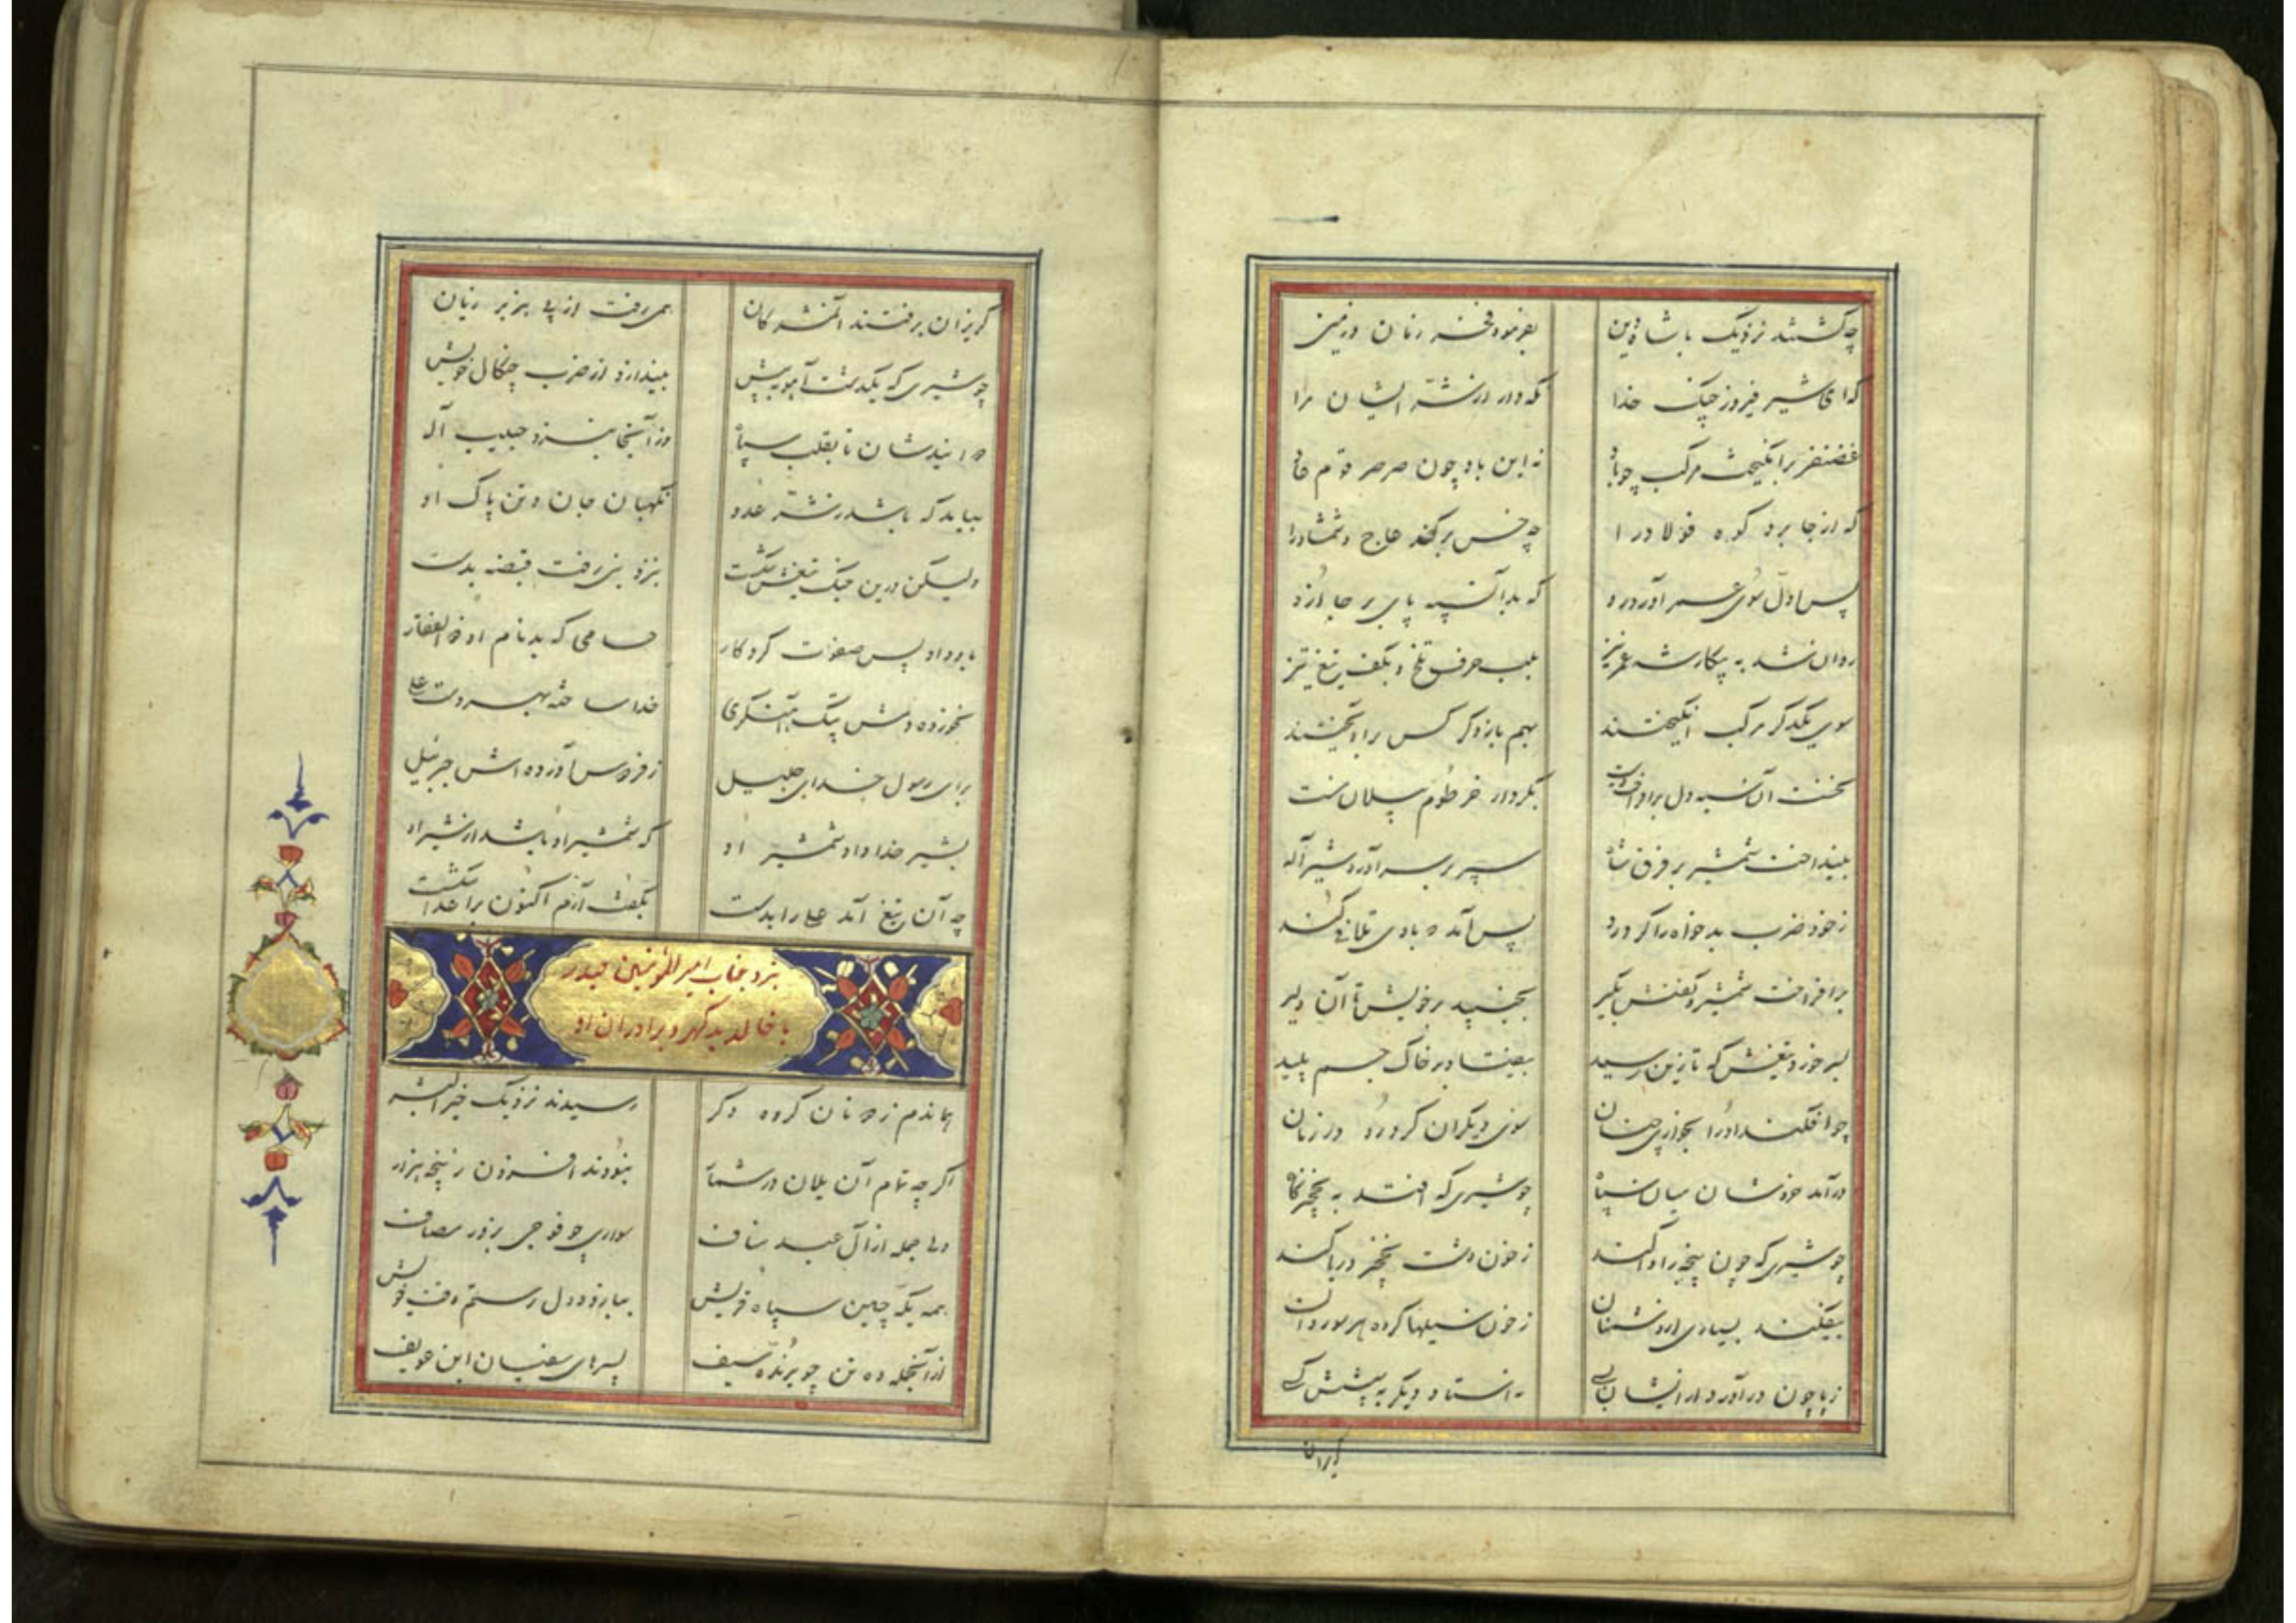 چه گشتند نزدیک با شاه دین بفرمود فخر زنان و زمین
که ای شیر فیروز جنگ خدا نگه دار از شر ایشان مرا
غضنفر برانگیخت مرکب چو باد نه این باد چون صرصر قوم عاد
که از جا برد کوه فولاد را چه خس بر کند عاج و شمشاد را
پس اول سوی عمر آورد رو که بد آن سپه پای بر جا ازو
روان شد به پیکار شه عمر نیز بلب حرف تلخ و بکف تیغ تیز
سوی یکدگر مرکب انگیختند بهم بازو کرکس برآویختند
نخست آن سیه دل برافراخت دست بکردار خرطوم پیلان مست
بینداخت شمشیر بر فرق شاه سپر بر سر آورد شیر اله
ز خود ضرب بدخواه را کرد رد پس آمد که بادی تلافی کند
برافراخت شمشیر و گفتش بگیر بجنبید بر خویش تا آن دلیر
بسر خورد تیغش که تا زین رسید بیفتاد بر خاک جسم پلید
چو افکند او را بخواری چنان سوی دیگران کرد رو در زمان
درآمد خروشان میان سپاه چو شیری که افتد به نخجیرگاه
چو شیری که چون پنجه را وا کند ز خون دشت نخجیر دریا کند
بیفکند بسیاری از دشمنان ز خون سیلها کرد هر سو روان
ز پا چون درآورد از ایشان بسی نه استاد دیگر به پیشش کسی
گریزان
گریزان برفتند آن مشرکان همی رفت از پی هژبر ژیان
چو شیری که یکدشت آهو به پیش بیندازد از ضرب چنگال خویش
دوانیدشان تا بقلب سپاه وز آنجا بنزد حبیب اله
بیامد که باشد ز شر عدو نگهبان جان و تن پاک او
ولیکن درین جنگ تیغش شکست بنزد نبی رفت قبضه بدست
باو داد پس صفوت کردگار حسامی که بد نام او ذوالفقار
نخورده دمش پتک آهنگری خدا ساخته بهر دست علی
برای رسول خدای جلیل ز فردوس آورده اش جبرئیل
بشیر خدا داد شمشیر او که شمشیر او باشد از شیر او
چه آن تیغ آمد علی را بدست بگفت آرم اکنون بر اعدا شکست
نبرد جناب امیرالمؤمنین حیدر
با خالد بدگهر و برادران او
هماندم ز دونان گروه دگر رسیدند نزدیک خیرالبشر
اگر چه تمام آن یلان در شمار نبودند افزون ز پنجه هزار
ولی جمله از آل عبد مناف سواری چو فوجی بروز مصاف
همه یکه چین سپاه قریش ببازو و دل رستم وقت خویش
از آنجمله ده تن چو برنده سیف پسرهای سفیان ابن عویف